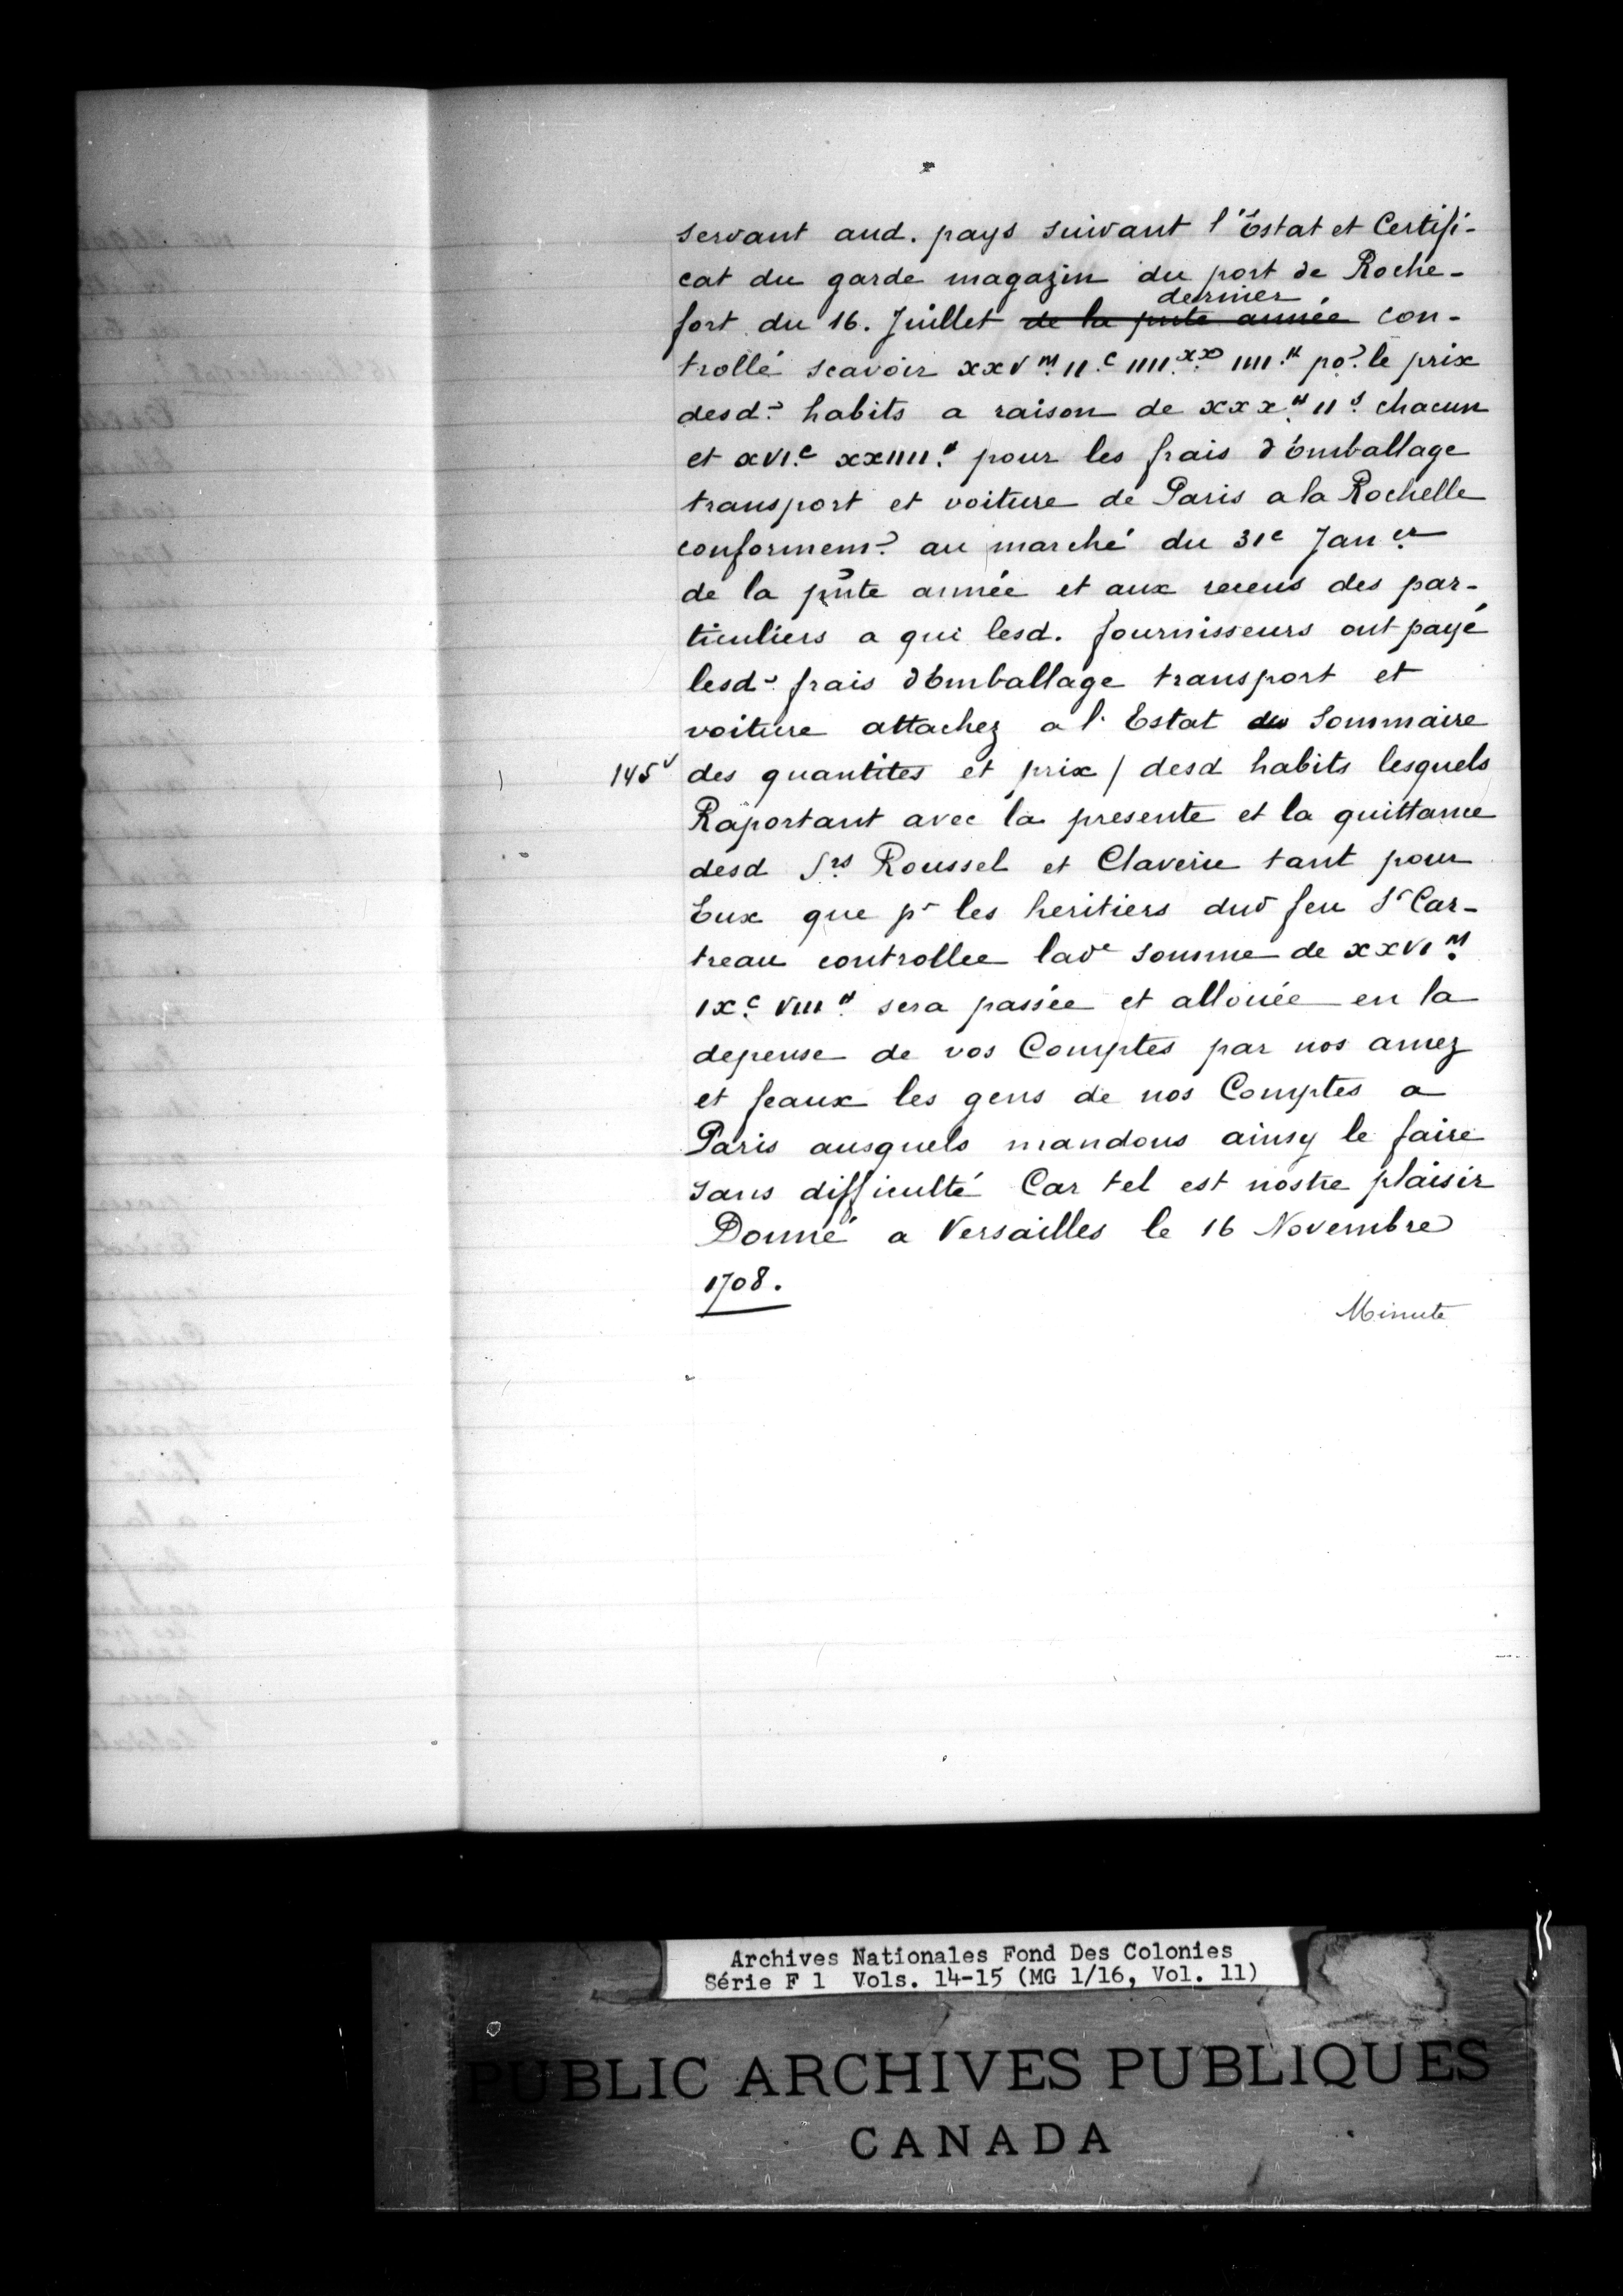 servant aud. pays suivant l'Estat et Certifi-
cat du garde magazin du port de Roche-
dernier
fort du 16. Juillet de la pnte année con-
trollé scavoir xxv m. ıı. c ıııı. xx ıııı. # po. le prix
desd. habits a raison de xxx # ıı s chacun
et xvı. c xxıııı. # pour les frais d'Emballage
transport et voiture de Paris a la Rochelle
conformem. au marché du 31e Jan er
de la pñte année et aux receus des par-
ticuliers a qui lesd. fournisseurs ont payé
lesd. frais d'Emballage transport et
voiture attachez a l'Estat du Sommaire
145 v des quantites et prix / desd habits lesquels
Raportant avec la presente et la quittance
desd Srs Roussel et Claverie tant pour
Eux que pr les heritiers dud feu Sr Car-
treau controllee lade somme de xxvı m.
ıx. c vııı # sera passée et allouée en la
depense de vos Comptes par nos amez
et feaux les gens de nos Comptes a
Paris ausquels mandons ainsy le faire
sans difficulté Car tel est nostre plaisir
Donné a Versailles le 16 Novembre
1708.
Minute
Archives Nationales Fond Des Colonies
Série F 1 Vols. 14-15 (MG 1/16, Vol. 11)
PUBLIC ARCHIVES PUBLIQUES
CANADA